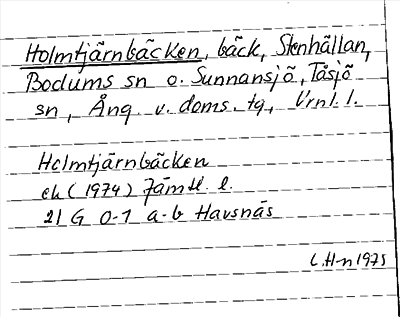 Holmtjärnbäcken, bäck, Stenhällan,
Bodums sn o. Sunnansjö, Tåsjö
sn, Ång v. doms. tg, Vrnl. l.
Holmtjärnbäcken
ek (1974) Jämtl. l.
21 G 0-1 a-b Havsnäs
L.H-n 1975